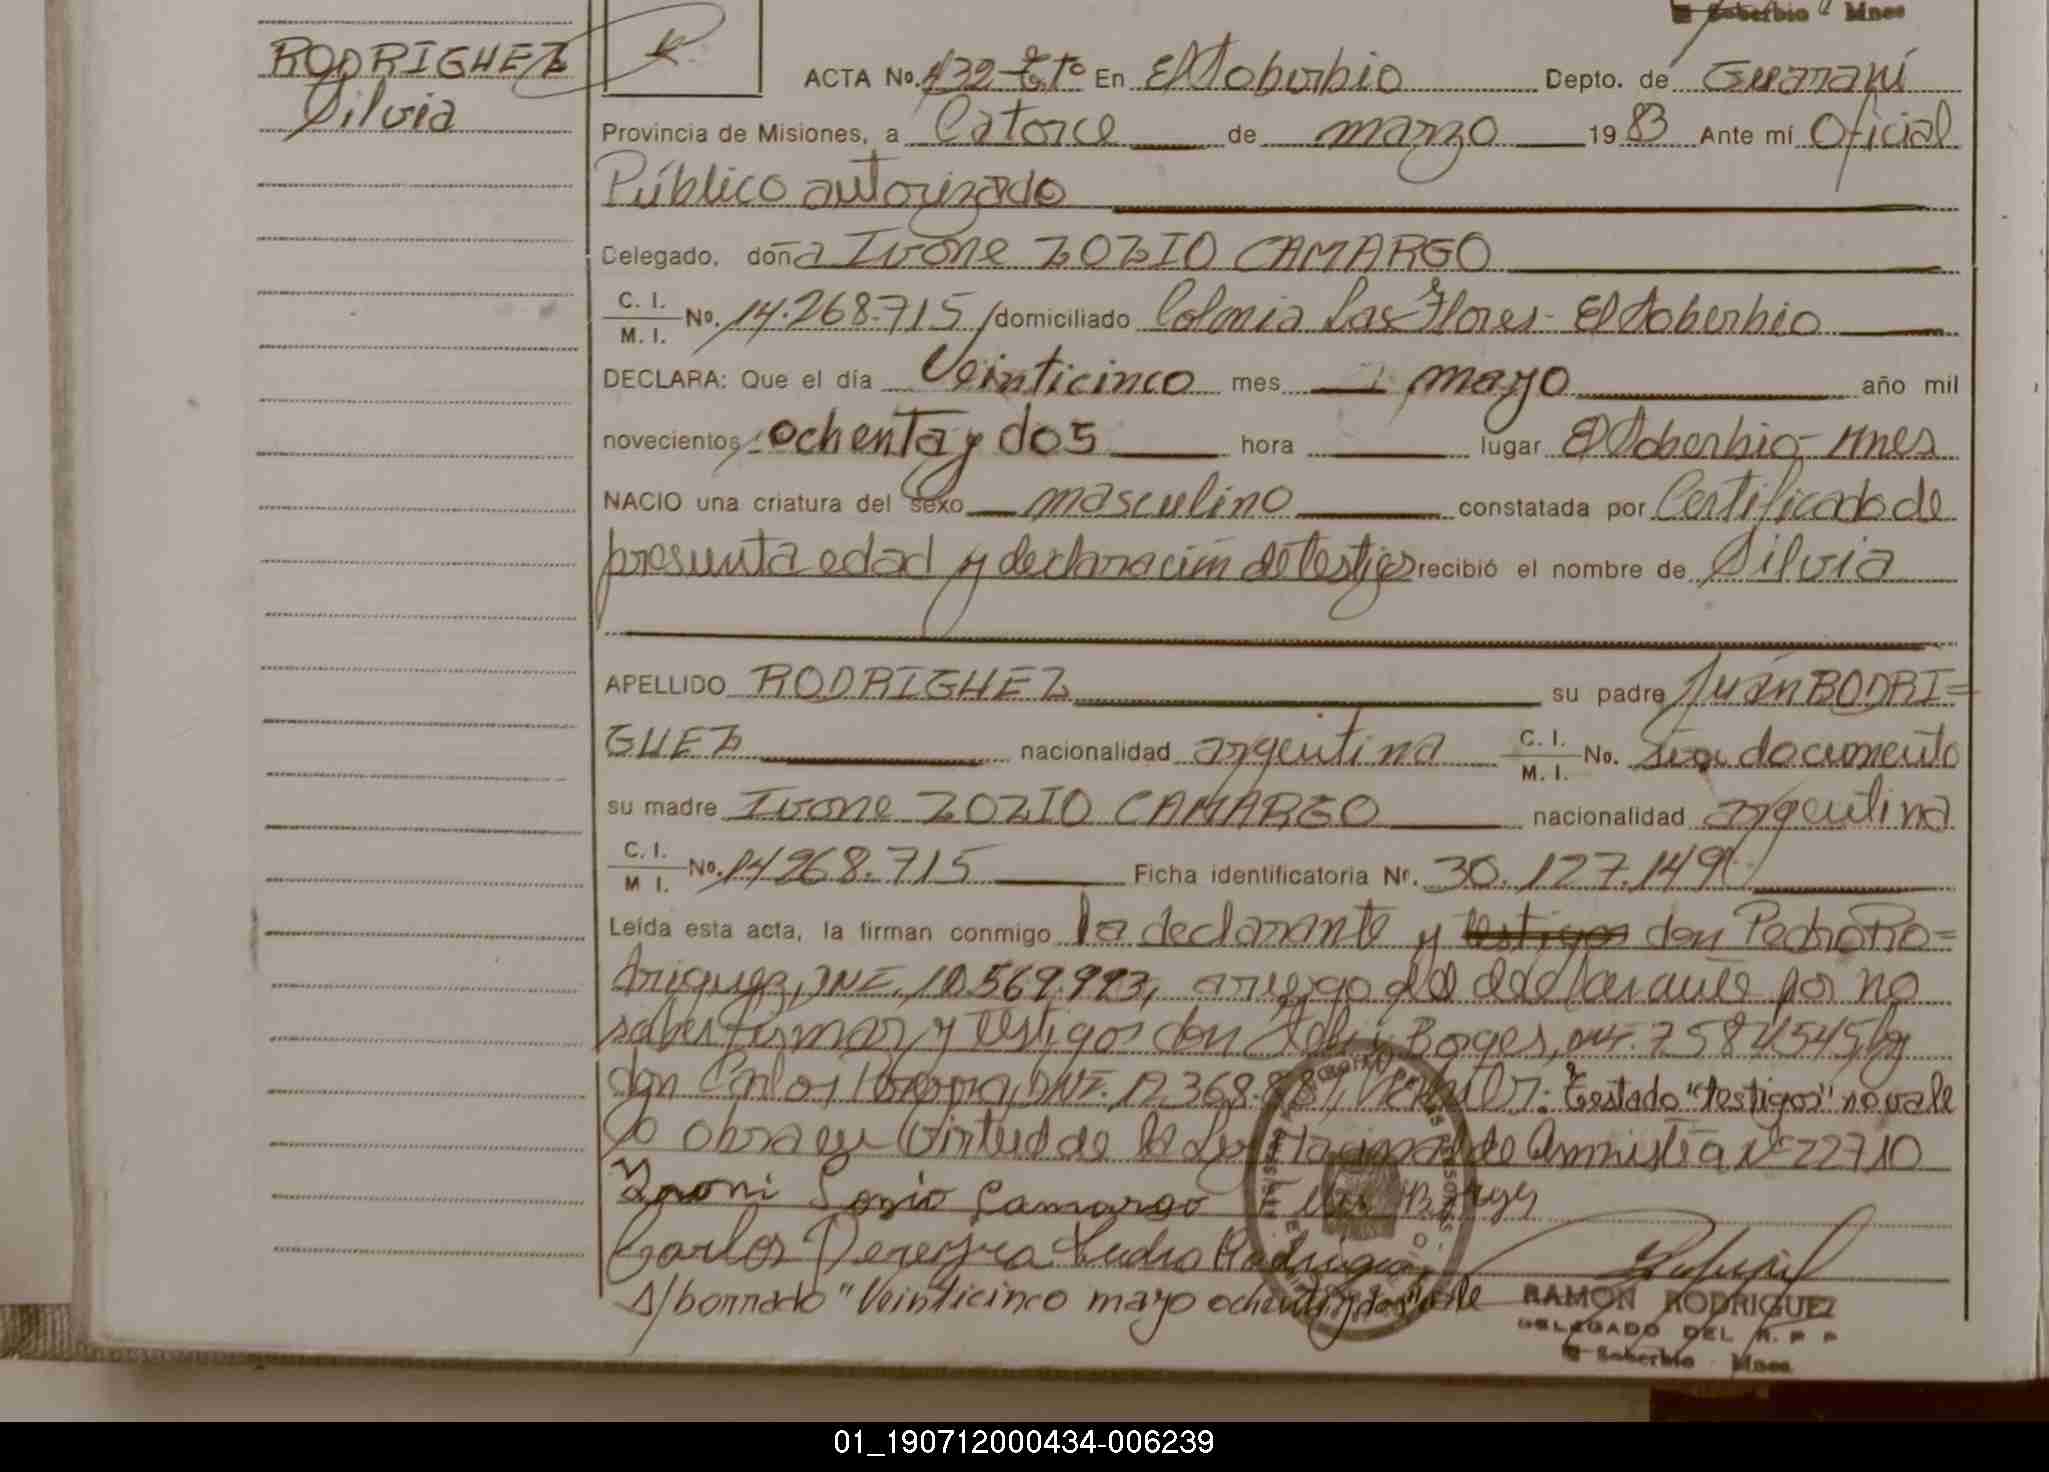 El Soberbio Mnes
RODRIGUEZ
Silvia
ACTA No. 132 Tº Iº En El Soberbio Depto. de Guaraní
Provincia de Misiones, a Catorce de marzo 1983 Ante mí Oficial
Público autorizado
Delegado, doña Ivone ZOZIO CAMARGO
C. I.
M. I. No. 14.268.715 /domiciliado Colonia Las Flores - El Soberbio
DECLARA: Que el día Veinticinco mes mayo año mil
novecientos ochenta y dos hora lugar El Soberbio - Mnes
NACIO una criatura del sexo masculino constatada por Certificado de
presunta edad y declaración de testigos recibió el nombre de Silvia
APELLIDO RODRIGUEZ su padre Juán RODRI=
GUEZ nacionalidad argentina C. I. M. I. No. sin documento
su madre Ivone ZOZIO CAMARGO nacionalidad argentina
C. I.
M. I. No. 14268.715 Ficha identificatoria Nr. 30.127.149
Leída esta acta, la firman conmigo la declarante y testigos don Pedro Ro=
driguez, DNI. 10.569.993, a ruego del declarante por no
saber firmar y testigos don Borges, 7584545 y
don Carlos Pereyra, DNI. 12.368. Testado "testigos" no vale
Se obra en Virtud de la Ley Nacional de Amnistía Nº 22710
Sozio Camargo Borges
Carlos Pereyra Pedro Rodriguez
S/borrado "Veinticinco mayo ochenta y dos" vale
RAMON RODRIGUEZ
DELEGADO DEL R. P P
El Soberbio Mnes
01_190712000434-006239